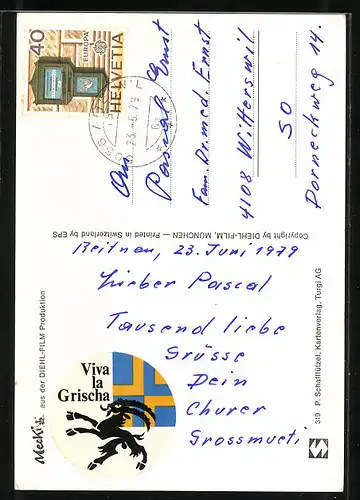 HELVETIA
40
EUROPA
An
Pascal Ernst
Fam. Dr. med. Ernst
4108 Witterswil
SO
Dorneckweg 14.
Copyright by DIEHL-FILM, MÜNCHEN — Printed in Switzerland by EPS
Reitnau, 23. Juni 1979
Lieber Pascal
Tausend liebe
Grüsse
Dein
Churer
Grossmueti
Mecki aus der DIEHL-FILM Produktion
Viva
la
Grischa
319 P. Schafflützel, Kartenverlag, Turgi AG